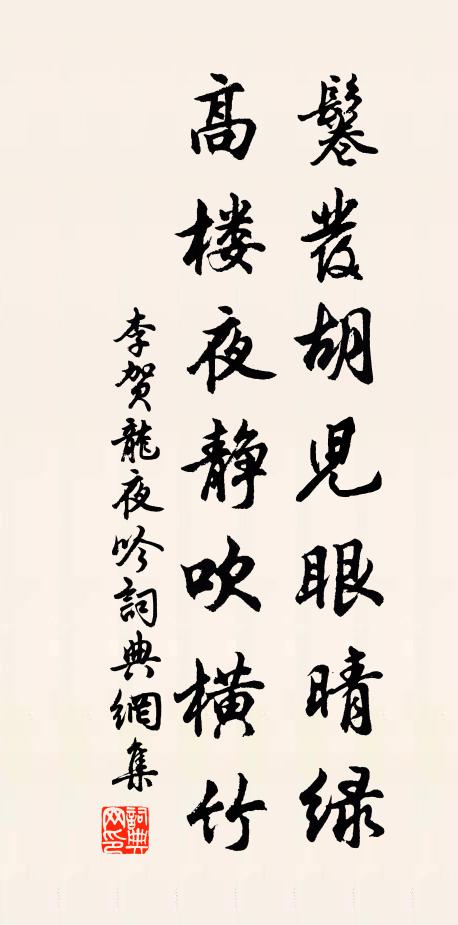 鬈发胡児眼晴绿
高楼夜静吹横竹
李贺龍夜吟詞典網集
詞典网印